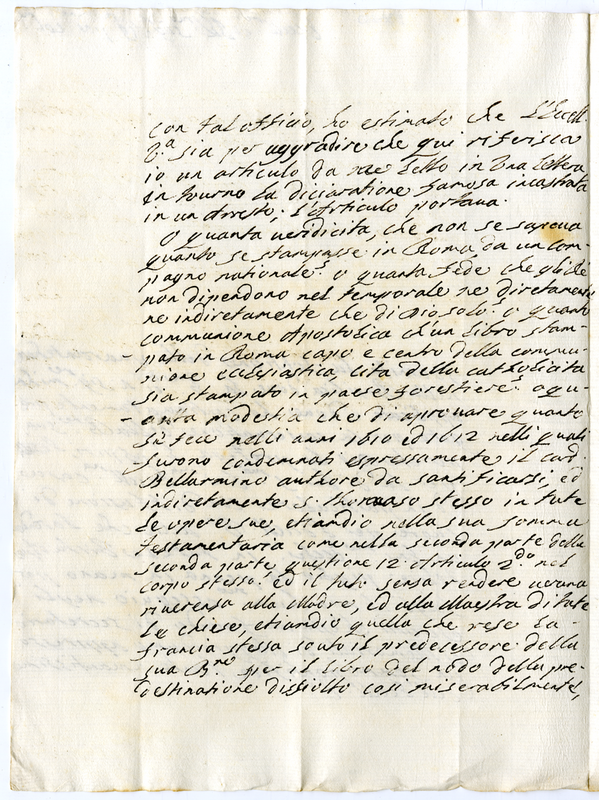 con tal officio, ho estimato che l'Eccell.
V.a sia per aggradire che qui riferisca
io un articulo da me letto in una lettera
in tourno la diciaratione famosa incastrata
in un Arresto; l'Articulo portaua.
O quanta ueridicita, che non se sapeua
quanto se stampasse in Roma da un com-
pagno nationale! o quanta fede che gli Rè
non dipendono nel temporale ne diretamente
ne indiretamente che di Dio solo! o quanta
communione Apostolica ch'un libro stam-
pato in Roma capo e centro della commu-
nione ecclesiastica, cita della catholicita
sia stampato in paese forestiere! o qu-
anta modestia che di aprouare quanto
si fece nelli anni 1610 ed 1612 nelli quali
furono condemnati espressamente il card.
Bellarmino authore da santificarsi, ed
indiretamente s. Thomaso stesso in tute
le opere sue, etiamdio nella sua somma
testamentaria come nella seconda parte della
seconda parte questione 12 Articulo 2.do nel
corpo stesso! ed il tuto sensa rendere ueruna
riuerensa alla Madre, ed alla Maestra di tute
le chiese, etiamdio quella che rese la
francia stessa souto il predecessore della
sua B.ne per il libro del nodo della pre-
destinatione dissiolto cosi miserabilmente,